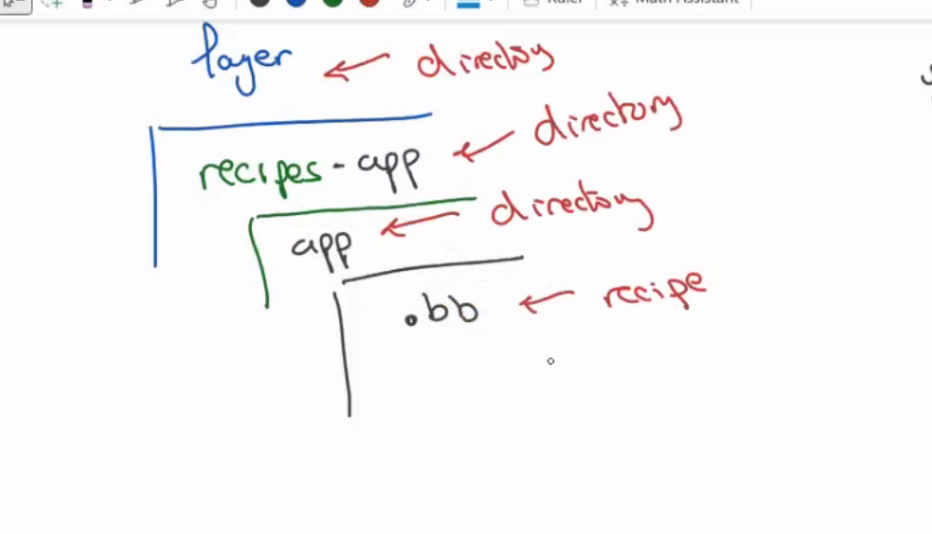 Ruler Math Assistant
layer ← directory
recipes - app ← directory
app ← directory
.bb ← recipe